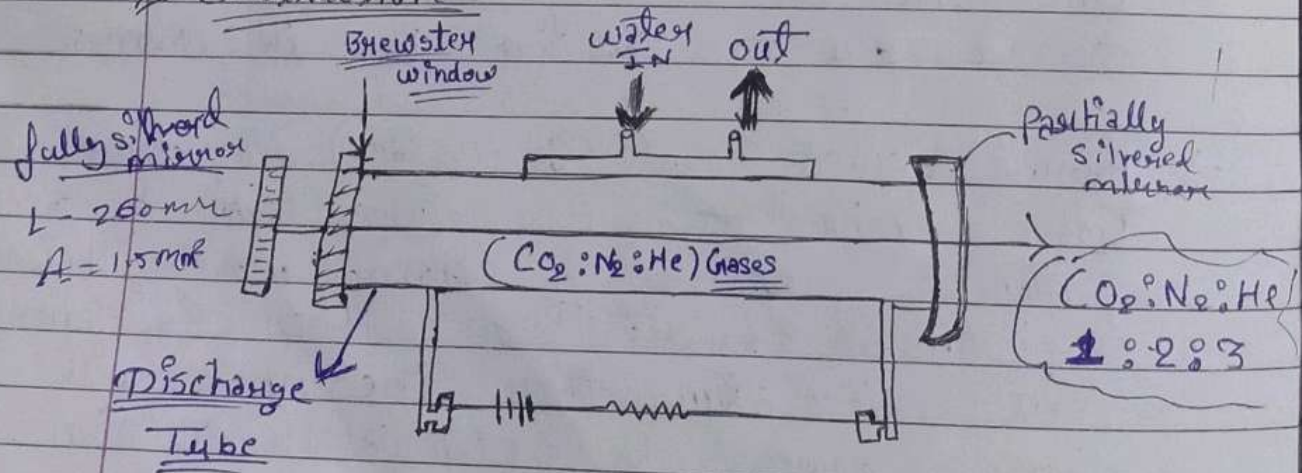 Brewster
window
water
IN
out
fully silverd
mirror
L - 260mm
A = 1.5mm²
Partially
silvered
(CO₂:N₂:He) Gases
(CO₂:N₂:He)
1:2:3
Discharge
Tube